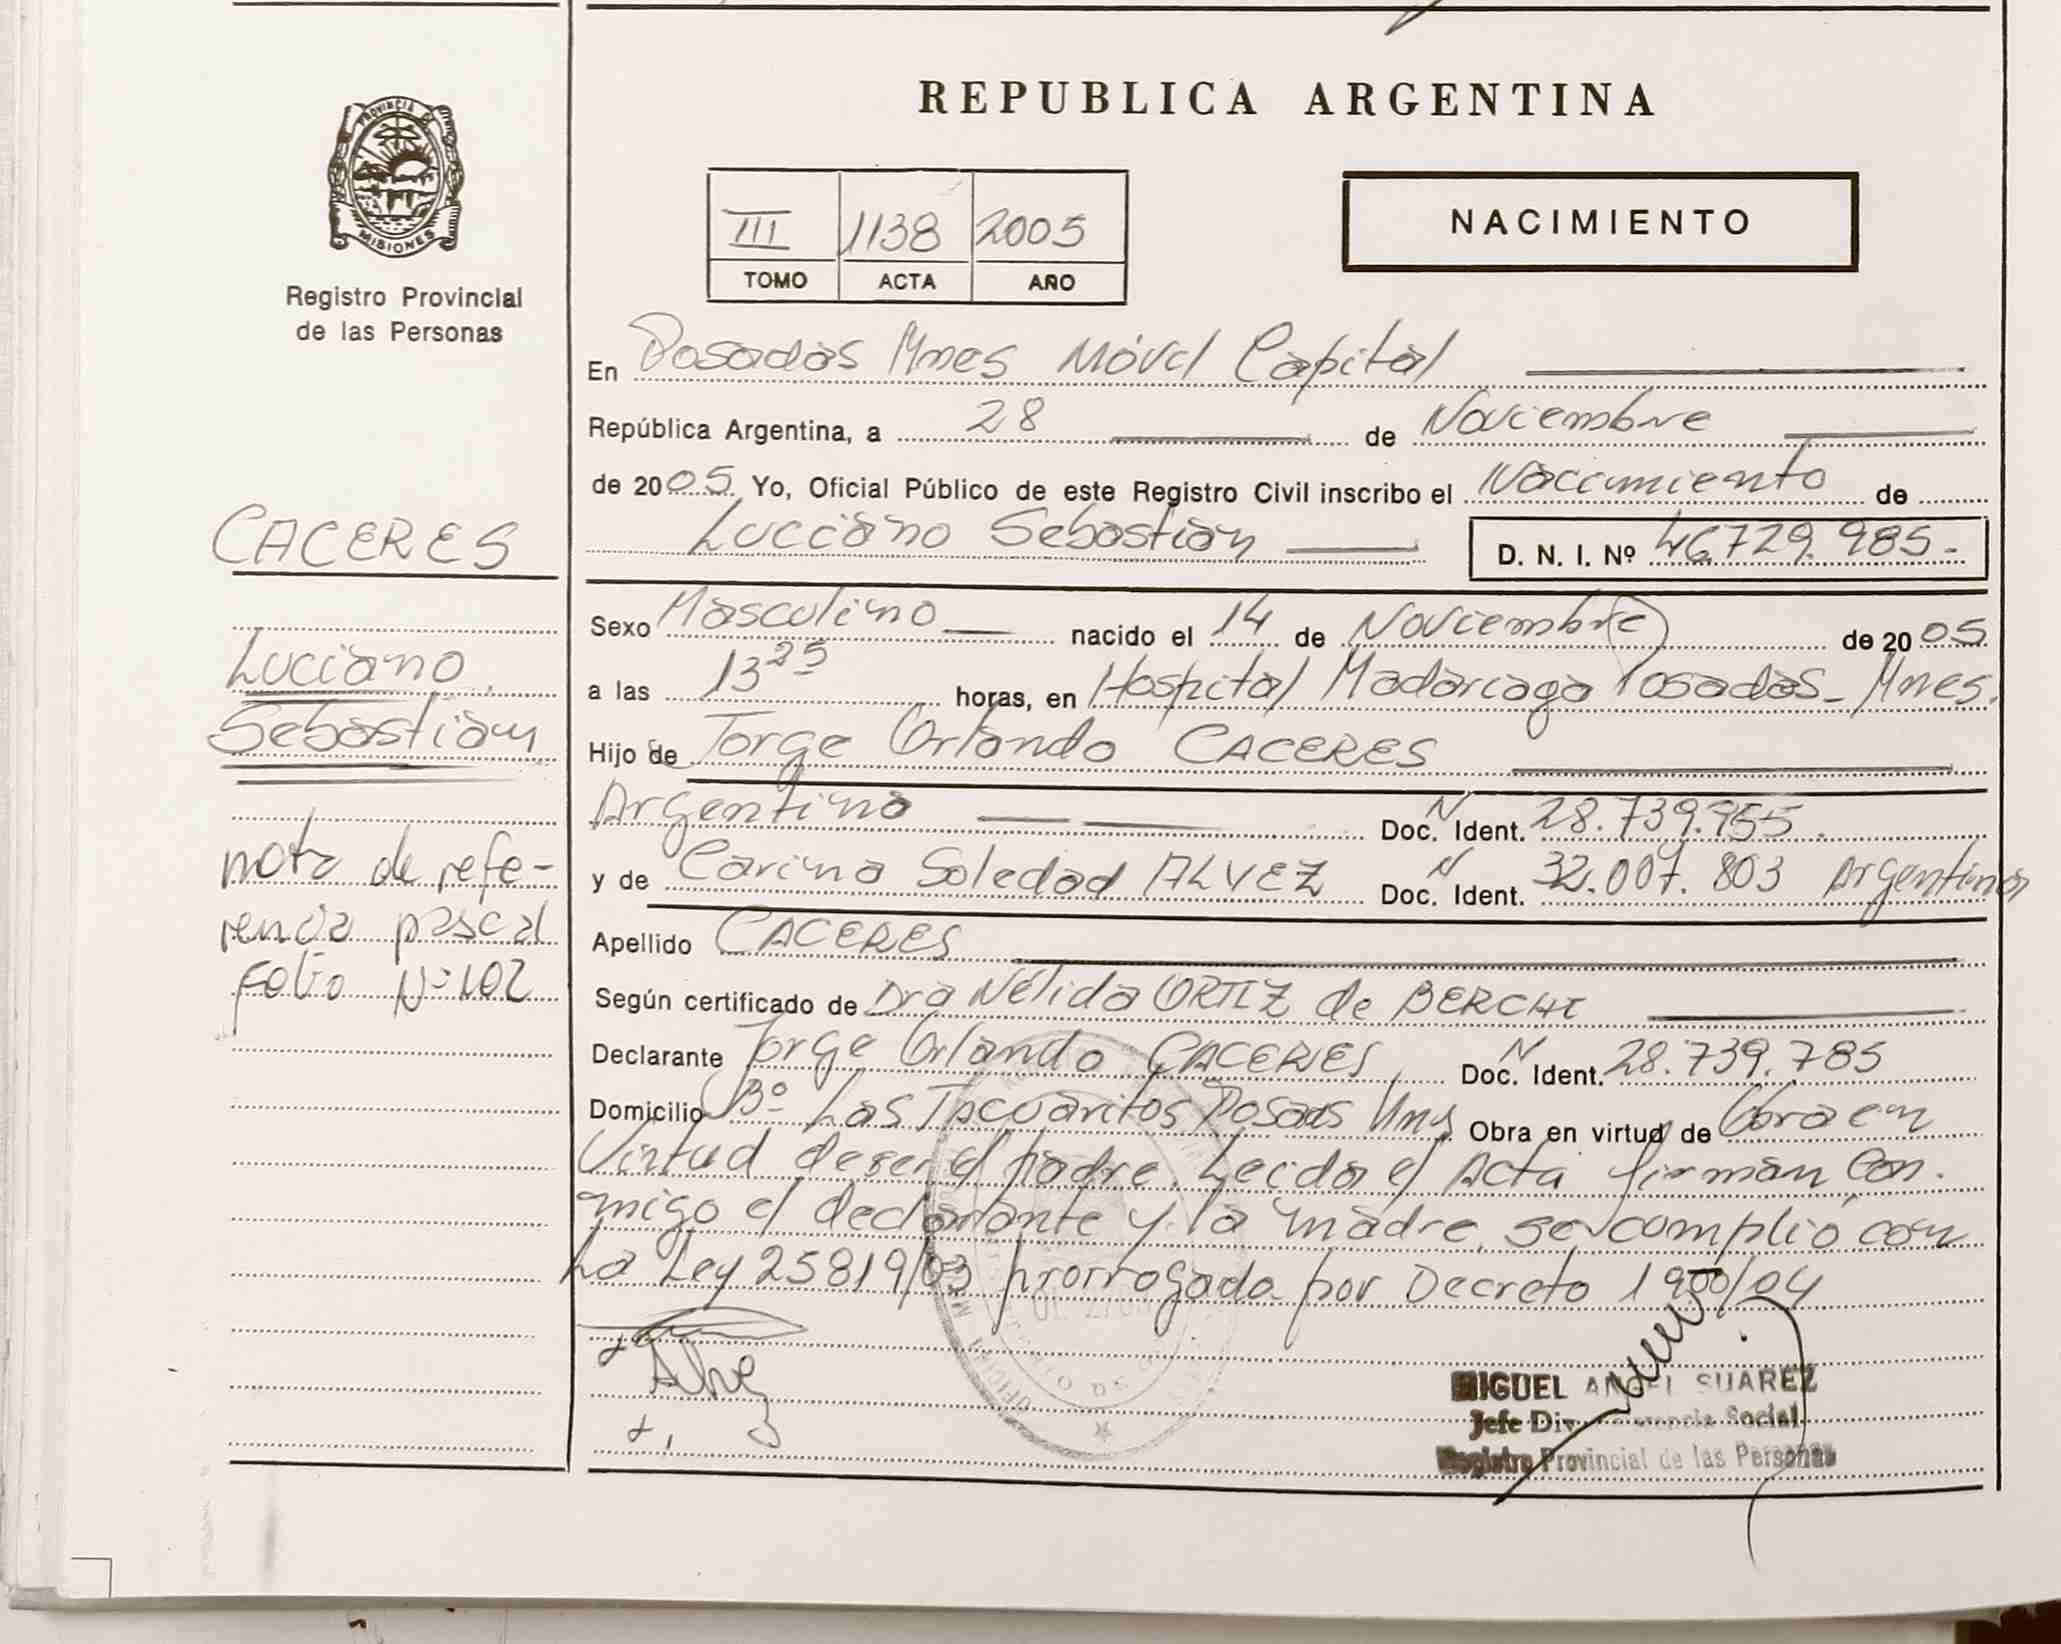 PROVINCIA DE
MISIONES
Registro Provincial
de las Personas
CACERES
Luciano
Sebastián
nota de refe-
rencia pascal
Folio Nº 102
REPUBLICA ARGENTINA
III 1138 2005
TOMO ACTA AÑO
NACIMIENTO
En Posadas Mnes Móvil Capital
República Argentina, a 28 de Noviembre
de 2005 Yo, Oficial Público de este Registro Civil inscribo el Naccimiento de
Lucciano Sebastián D. N. I. Nº 46.729.985.-
Sexo Masculino nacido el 14 de Noviembre de 2005
a las 13 25 horas, en Hospital Madariaga Posadas - Mnes.
Hijo de Jorge Orlando CACERES
Argentino Doc. Ident. N 28.739.955.
y de Carina Soledad ALVEZ Doc. Ident. N 32.007.803 Argentina
Apellido CACERES
Según certificado de Dra Nélida ORTIZ de BERCHI
Declarante Jorge Orlando CACERES Doc. Ident. N 28.739.785
Domicilio Bº Las Tacuaritas Posadas Mns Obra en virtud de Obra en
Virtud de ser el padre. Leida el Acta firman Con.
migo el declarante y la madre. se cumplió con
La Ley 25819/03 prorrogada por Decreto 1900/04
MIGUEL ANGEL SUAREZ
Jefe Div. Social
Registro Provincial de las Personas